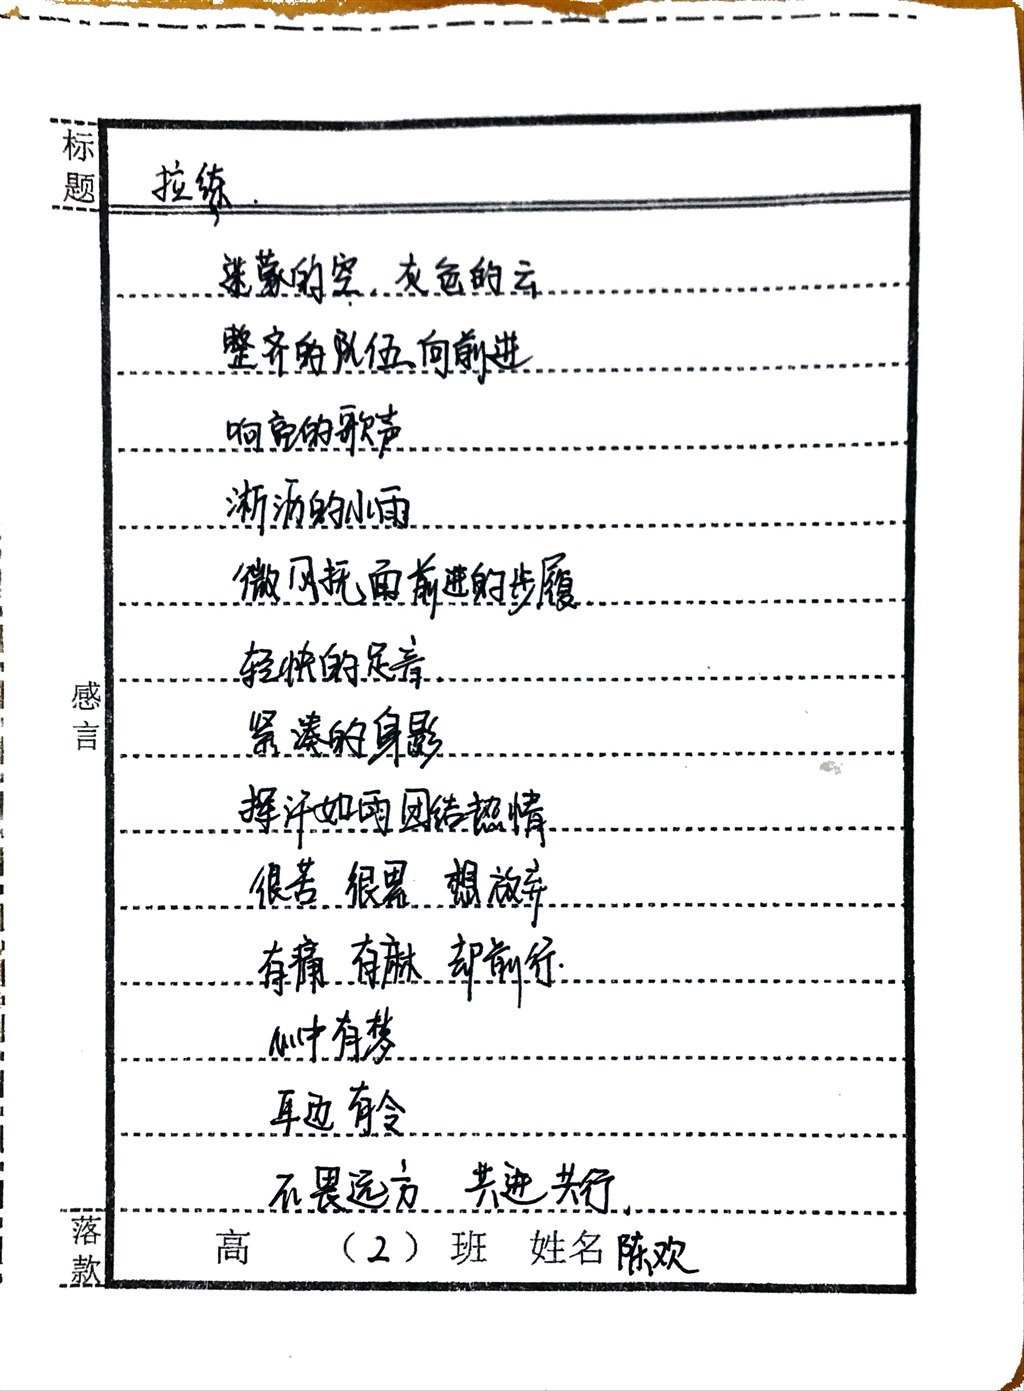 标题
拉练.
迷蒙的空，灰色的云
整齐的队伍、向前进
响亮的歌声
淅沥的小雨
微风抚面前进的步履
轻快的足音.
紧凑的身影
挥汗如雨团结热情
很苦 很累 想放弃
有痛 有麻 却前行.
心中有梦
耳边有令
不畏远方 共进共行.
感言
落款
高 （2）班 姓名陈欢